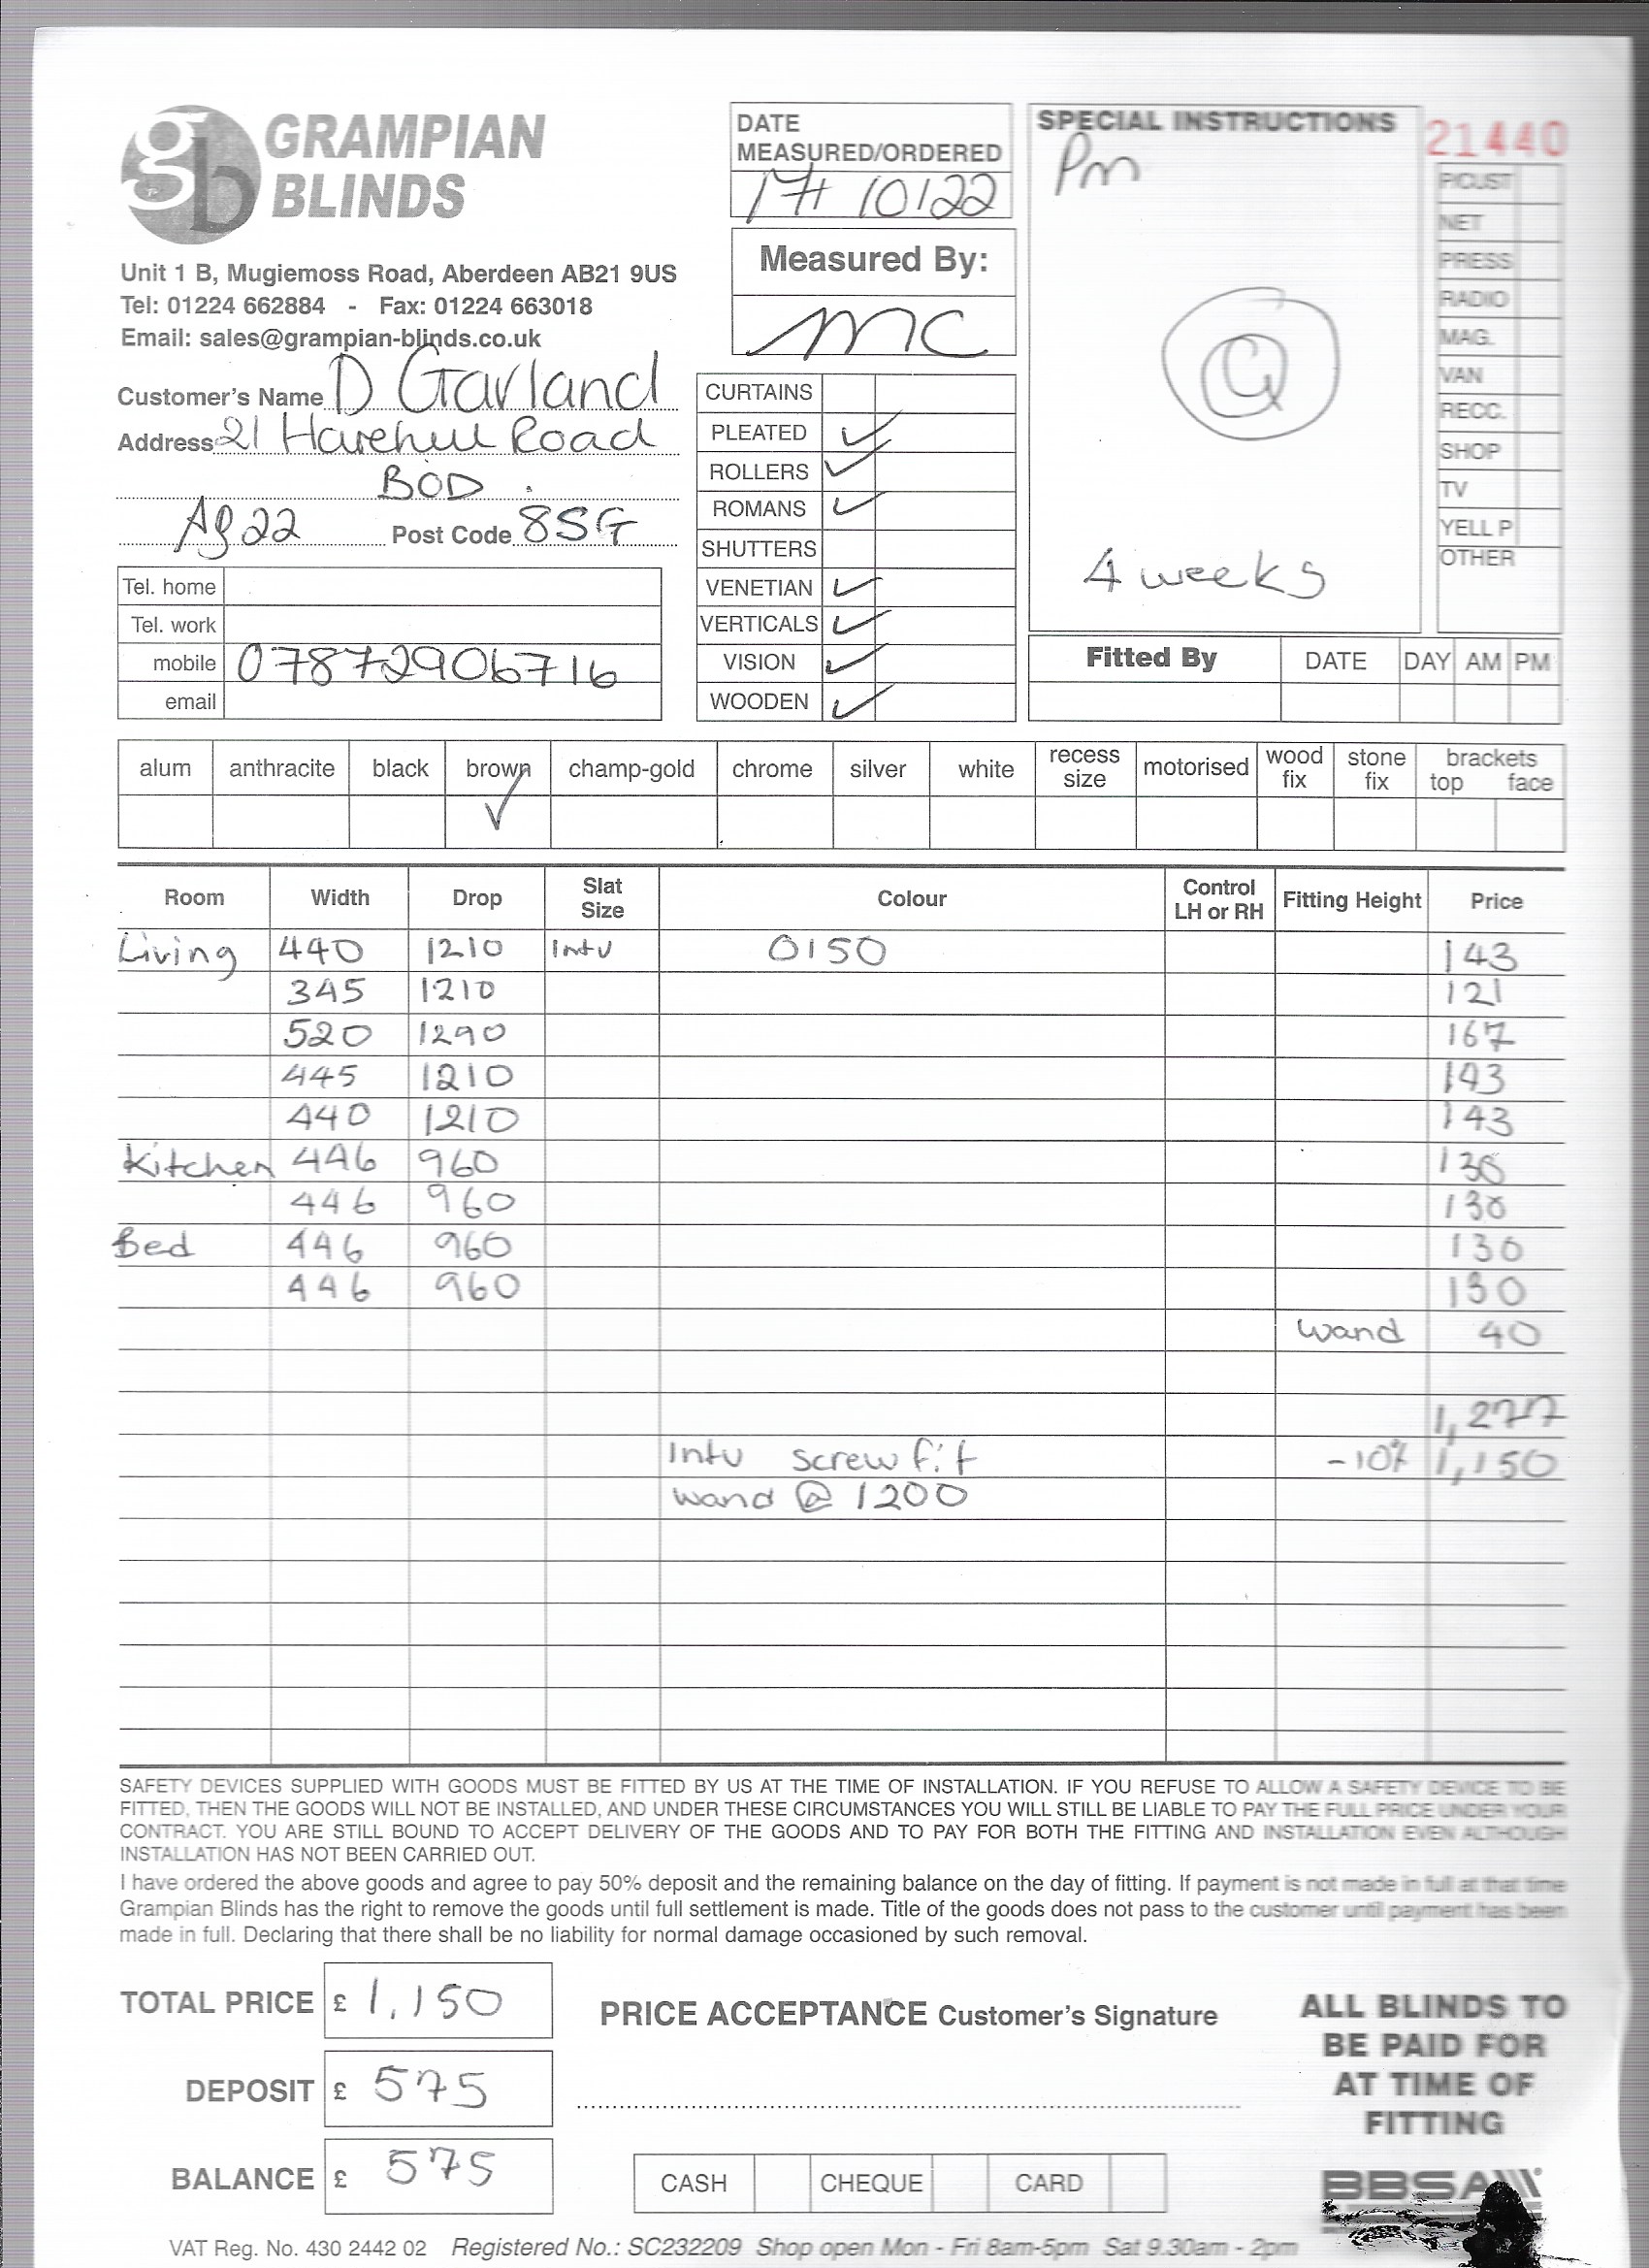 gb GRAMPIAN BLINDS
Unit 1 B, Mugiemoss Road, Aberdeen AB21 9US
Tel: 01224 662884 - Fax: 01224 663018
Email: sales@grampian-blinds.co.uk
Customer's Name D Garland
Address 21 Harehill Road
BOD.
AB22 Post Code 8SG
Tel. home
Tel. work
mobile 07872906716
email
DATE MEASURED/ORDERED
17/10/22
Measured By:
MC
CURTAINS
PLEATED ✓
ROLLERS ✓
ROMANS ✓
SHUTTERS
VENETIAN ✓
VERTICALS ✓
VISION ✓
WOODEN ✓
SPECIAL INSTRUCTIONS
Pm
4 weeks
21440
P/CUST
NET
PRESS
RADIO
MAG.
VAN
RECC.
SHOP
TV
YELL P
OTHER
Fitted By DATE DAY AM PM
alum anthracite black brown champ-gold chrome silver white recess size motorised wood fix stone fix brackets top face
✓
Room Width Drop Slat Size Colour Control LH or RH Fitting Height Price
Living 440 1210 Intu 0150 143
345 1210 121
520 1290 167
445 1210 143
440 1210 143
Kitchen 446 960 130
446 960 130
Bed 446 960 130
446 960 130
wand 40
1,277
Intu screw fit -10% 1,150
wand @ 1200
SAFETY DEVICES SUPPLIED WITH GOODS MUST BE FITTED BY US AT THE TIME OF INSTALLATION. IF YOU REFUSE TO ALLOW A SAFETY DEVICE TO BE
FITTED, THEN THE GOODS WILL NOT BE INSTALLED, AND UNDER THESE CIRCUMSTANCES YOU WILL STILL BE LIABLE TO PAY THE FULL PRICE UNDER YOUR
CONTRACT. YOU ARE STILL BOUND TO ACCEPT DELIVERY OF THE GOODS AND TO PAY FOR BOTH THE FITTING AND INSTALLATION EVEN ALTHOUGH
INSTALLATION HAS NOT BEEN CARRIED OUT.
I have ordered the above goods and agree to pay 50% deposit and the remaining balance on the day of fitting. If payment is not made in full at that time
Grampian Blinds has the right to remove the goods until full settlement is made. Title of the goods does not pass to the customer until payment has been
made in full. Declaring that there shall be no liability for normal damage occasioned by such removal.
TOTAL PRICE £ 1,150
DEPOSIT £ 575
BALANCE £ 575
PRICE ACCEPTANCE Customer's Signature
CASH CHEQUE CARD
ALL BLINDS TO
BE PAID FOR
AT TIME OF
FITTING
BBSA
VAT Reg. No. 430 2442 02 Registered No.: SC232209 Shop open Mon - Fri 8am-5pm Sat 9.30am - 2pm